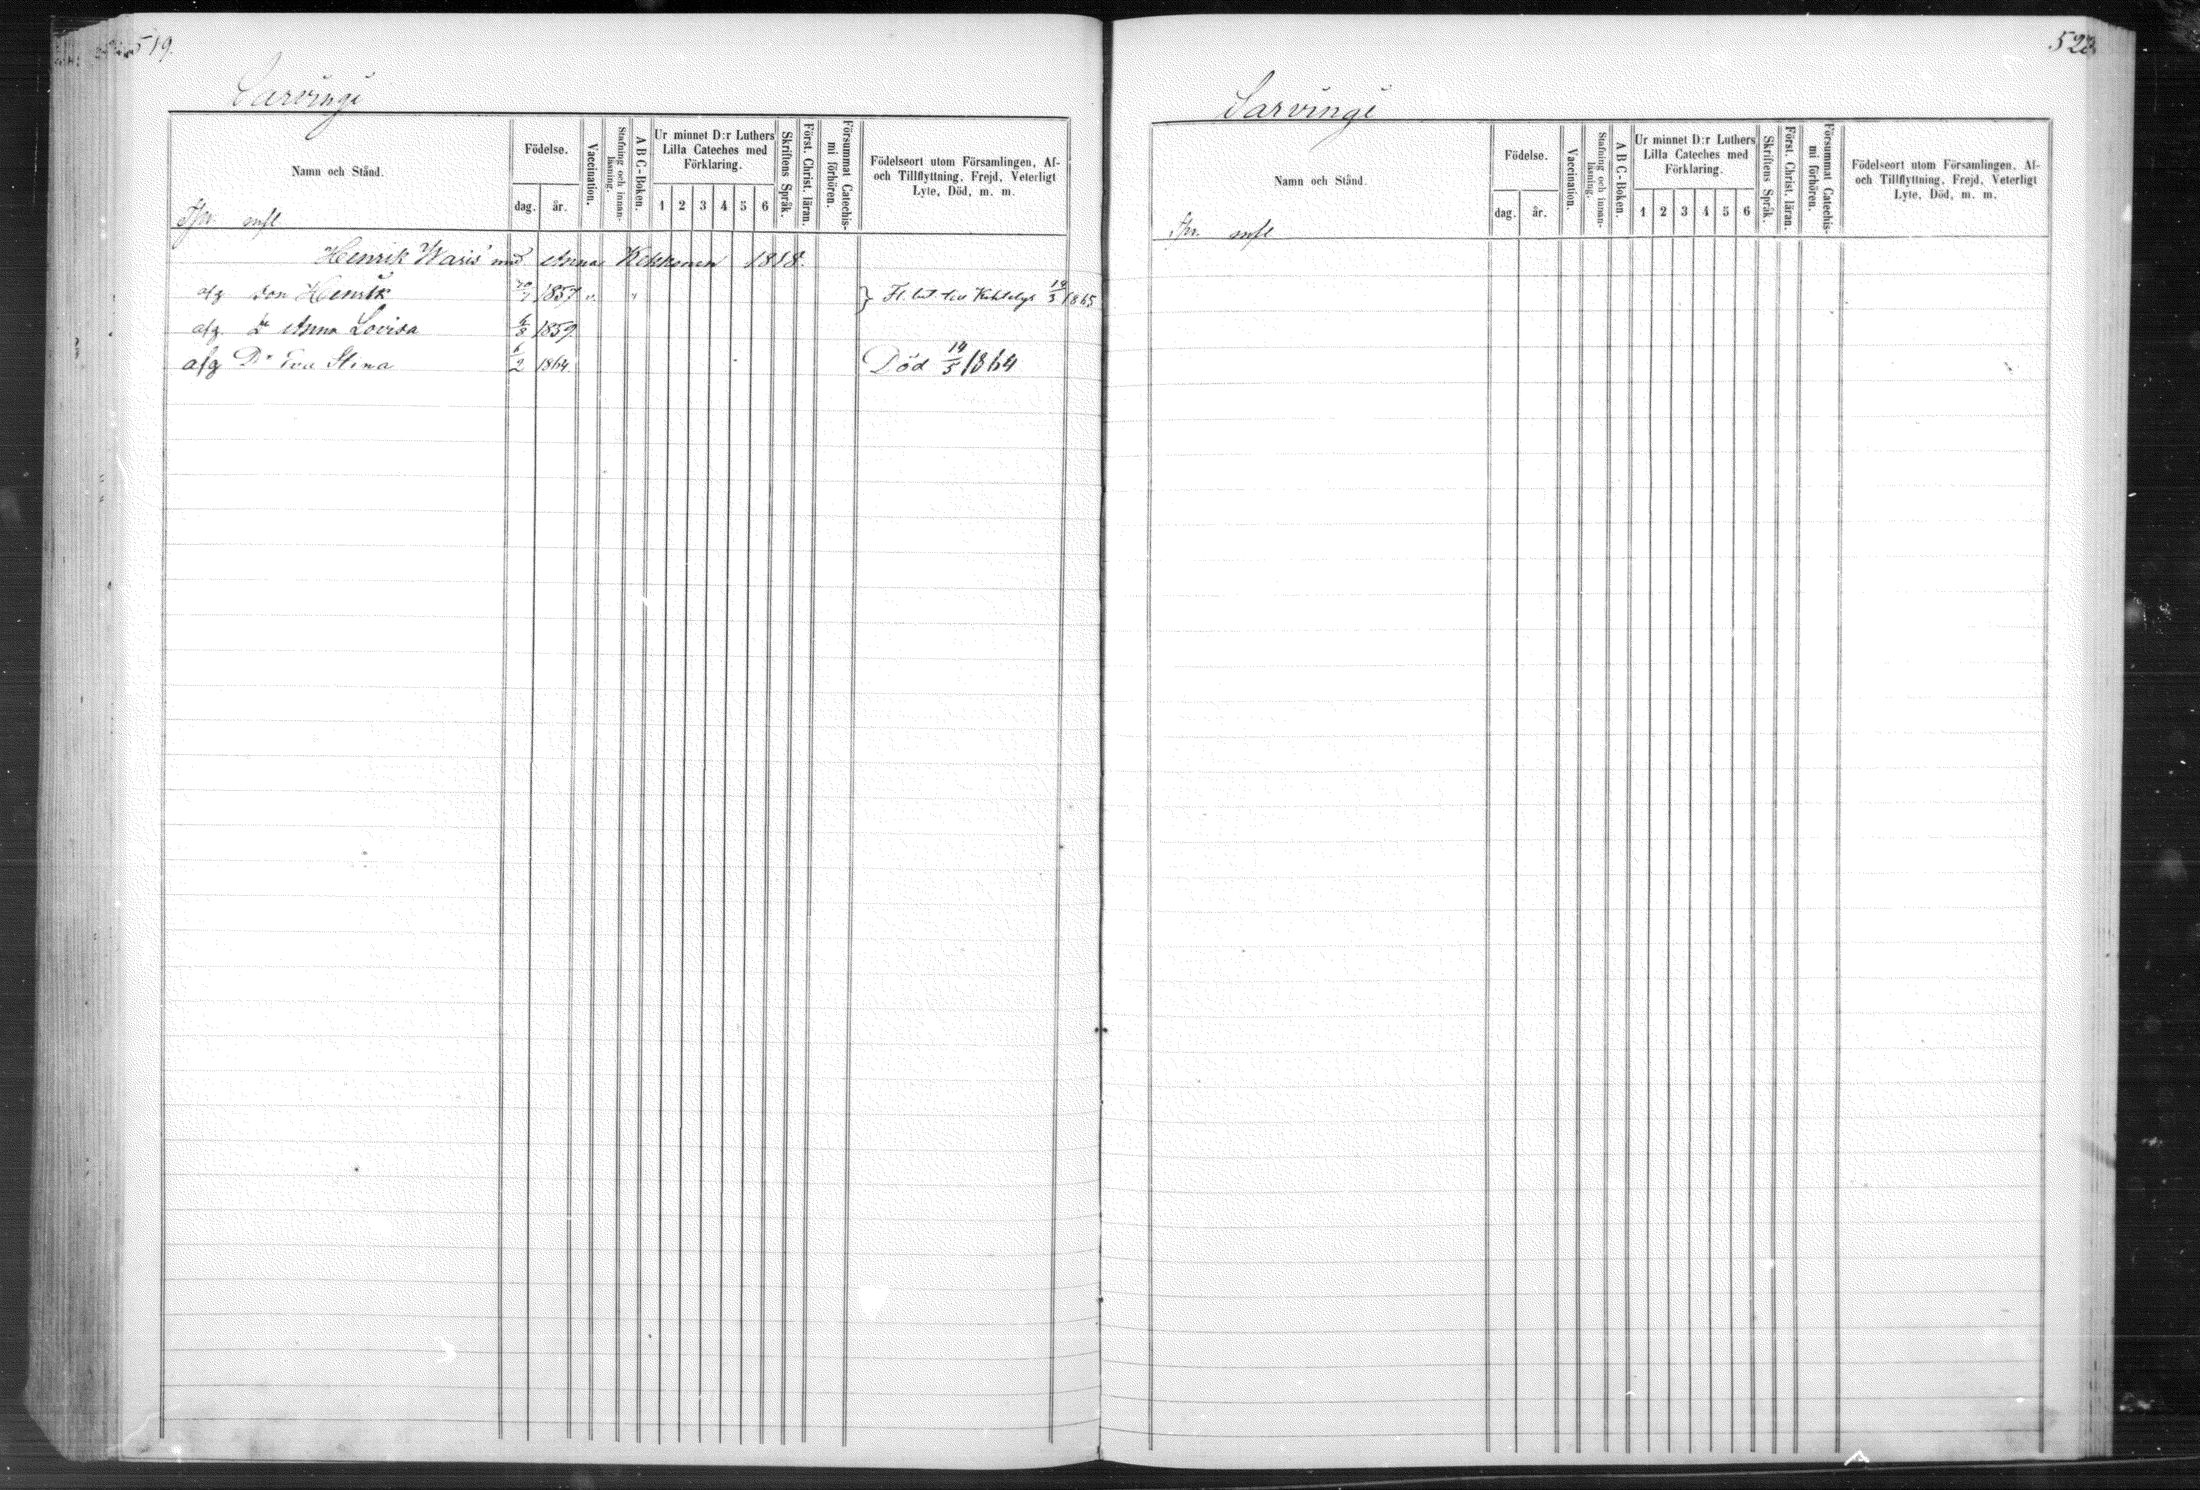 519.
Sarvingi
Namn och Stånd.
Födelse.
dag.
år.
Vaccination.
Stafning och innan-
läsning.
A B C-Boken.
Ur minnet D:r Luthers
Lilla Cateches med
Förklaring.
1 2 3 4 5 6
Skriftens Språk.
Först. Christ. läran.
Försummat Catechis-
mi förhören.
Födelseort utom Församlingen, Af-
och Tillflyttning, Frejd, Veterligt
Lyte, Död, m. m.
Henrik Waris med Anna Kekkonen 1818.
afg Son Henrik 1857
afg Dr Anna Lovisa 6/8 1859
afg Dr Eva Stina 6/2 1864. Död 14/5 1864
Sarvingi
Namn och Stånd.
Födelse.
dag.
år.
Vaccination.
Stafning och innan-
läsning.
A B C-Boken.
Ur minnet D:r Luthers
Lilla Cateches med
Förklaring.
1 2 3 4 5 6
Skriftens Språk.
Först. Christ. läran.
Försummat Catechis-
mi förhören.
Födelseort utom Församlingen, Af-
och Tillflyttning, Frejd, Veterligt
Lyte, Död, m. m.